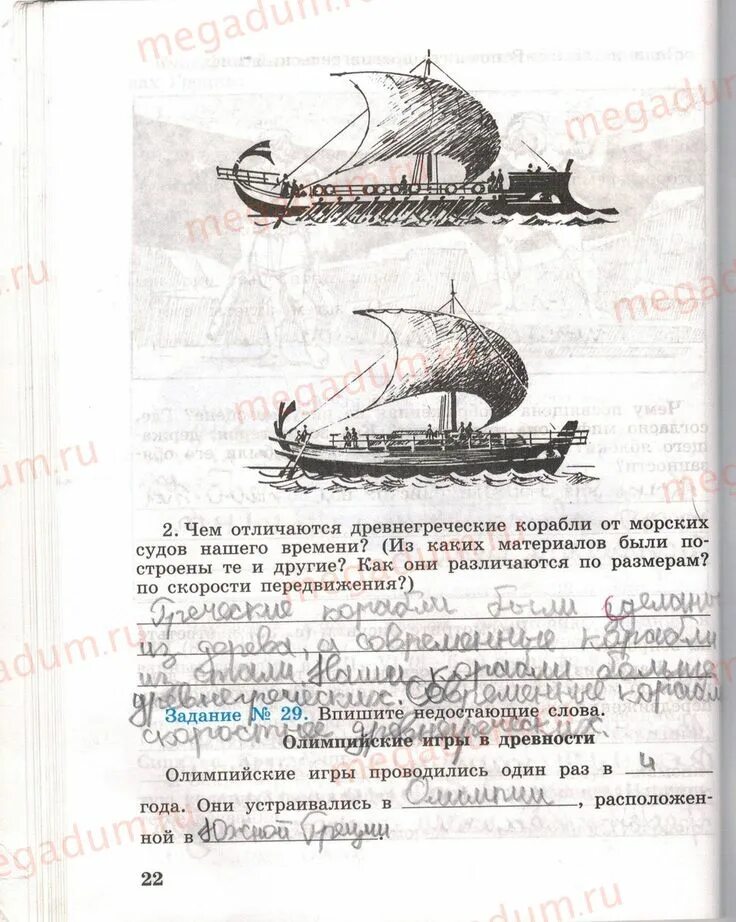 megadum.ru
2. Чем отличаются древнегреческие корабли от морских
судов нашего времени? (Из каких материалов были по-
строены те и другие? Как они различаются по размерам?
по скорости передвижения?)
Греческие корабли были сделаны
из дерева, а современные корабли
из стали. Наши корабли больше
древнегреческих. Современные корабли
скоростнее древнегреческих.
Задание № 29. Впишите недостающие слова.
Олимпийские игры в древности
Олимпийские игры проводились один раз в 4
года. Они устраивались в Олимпии, расположен-
ной в Южной Греции.
22